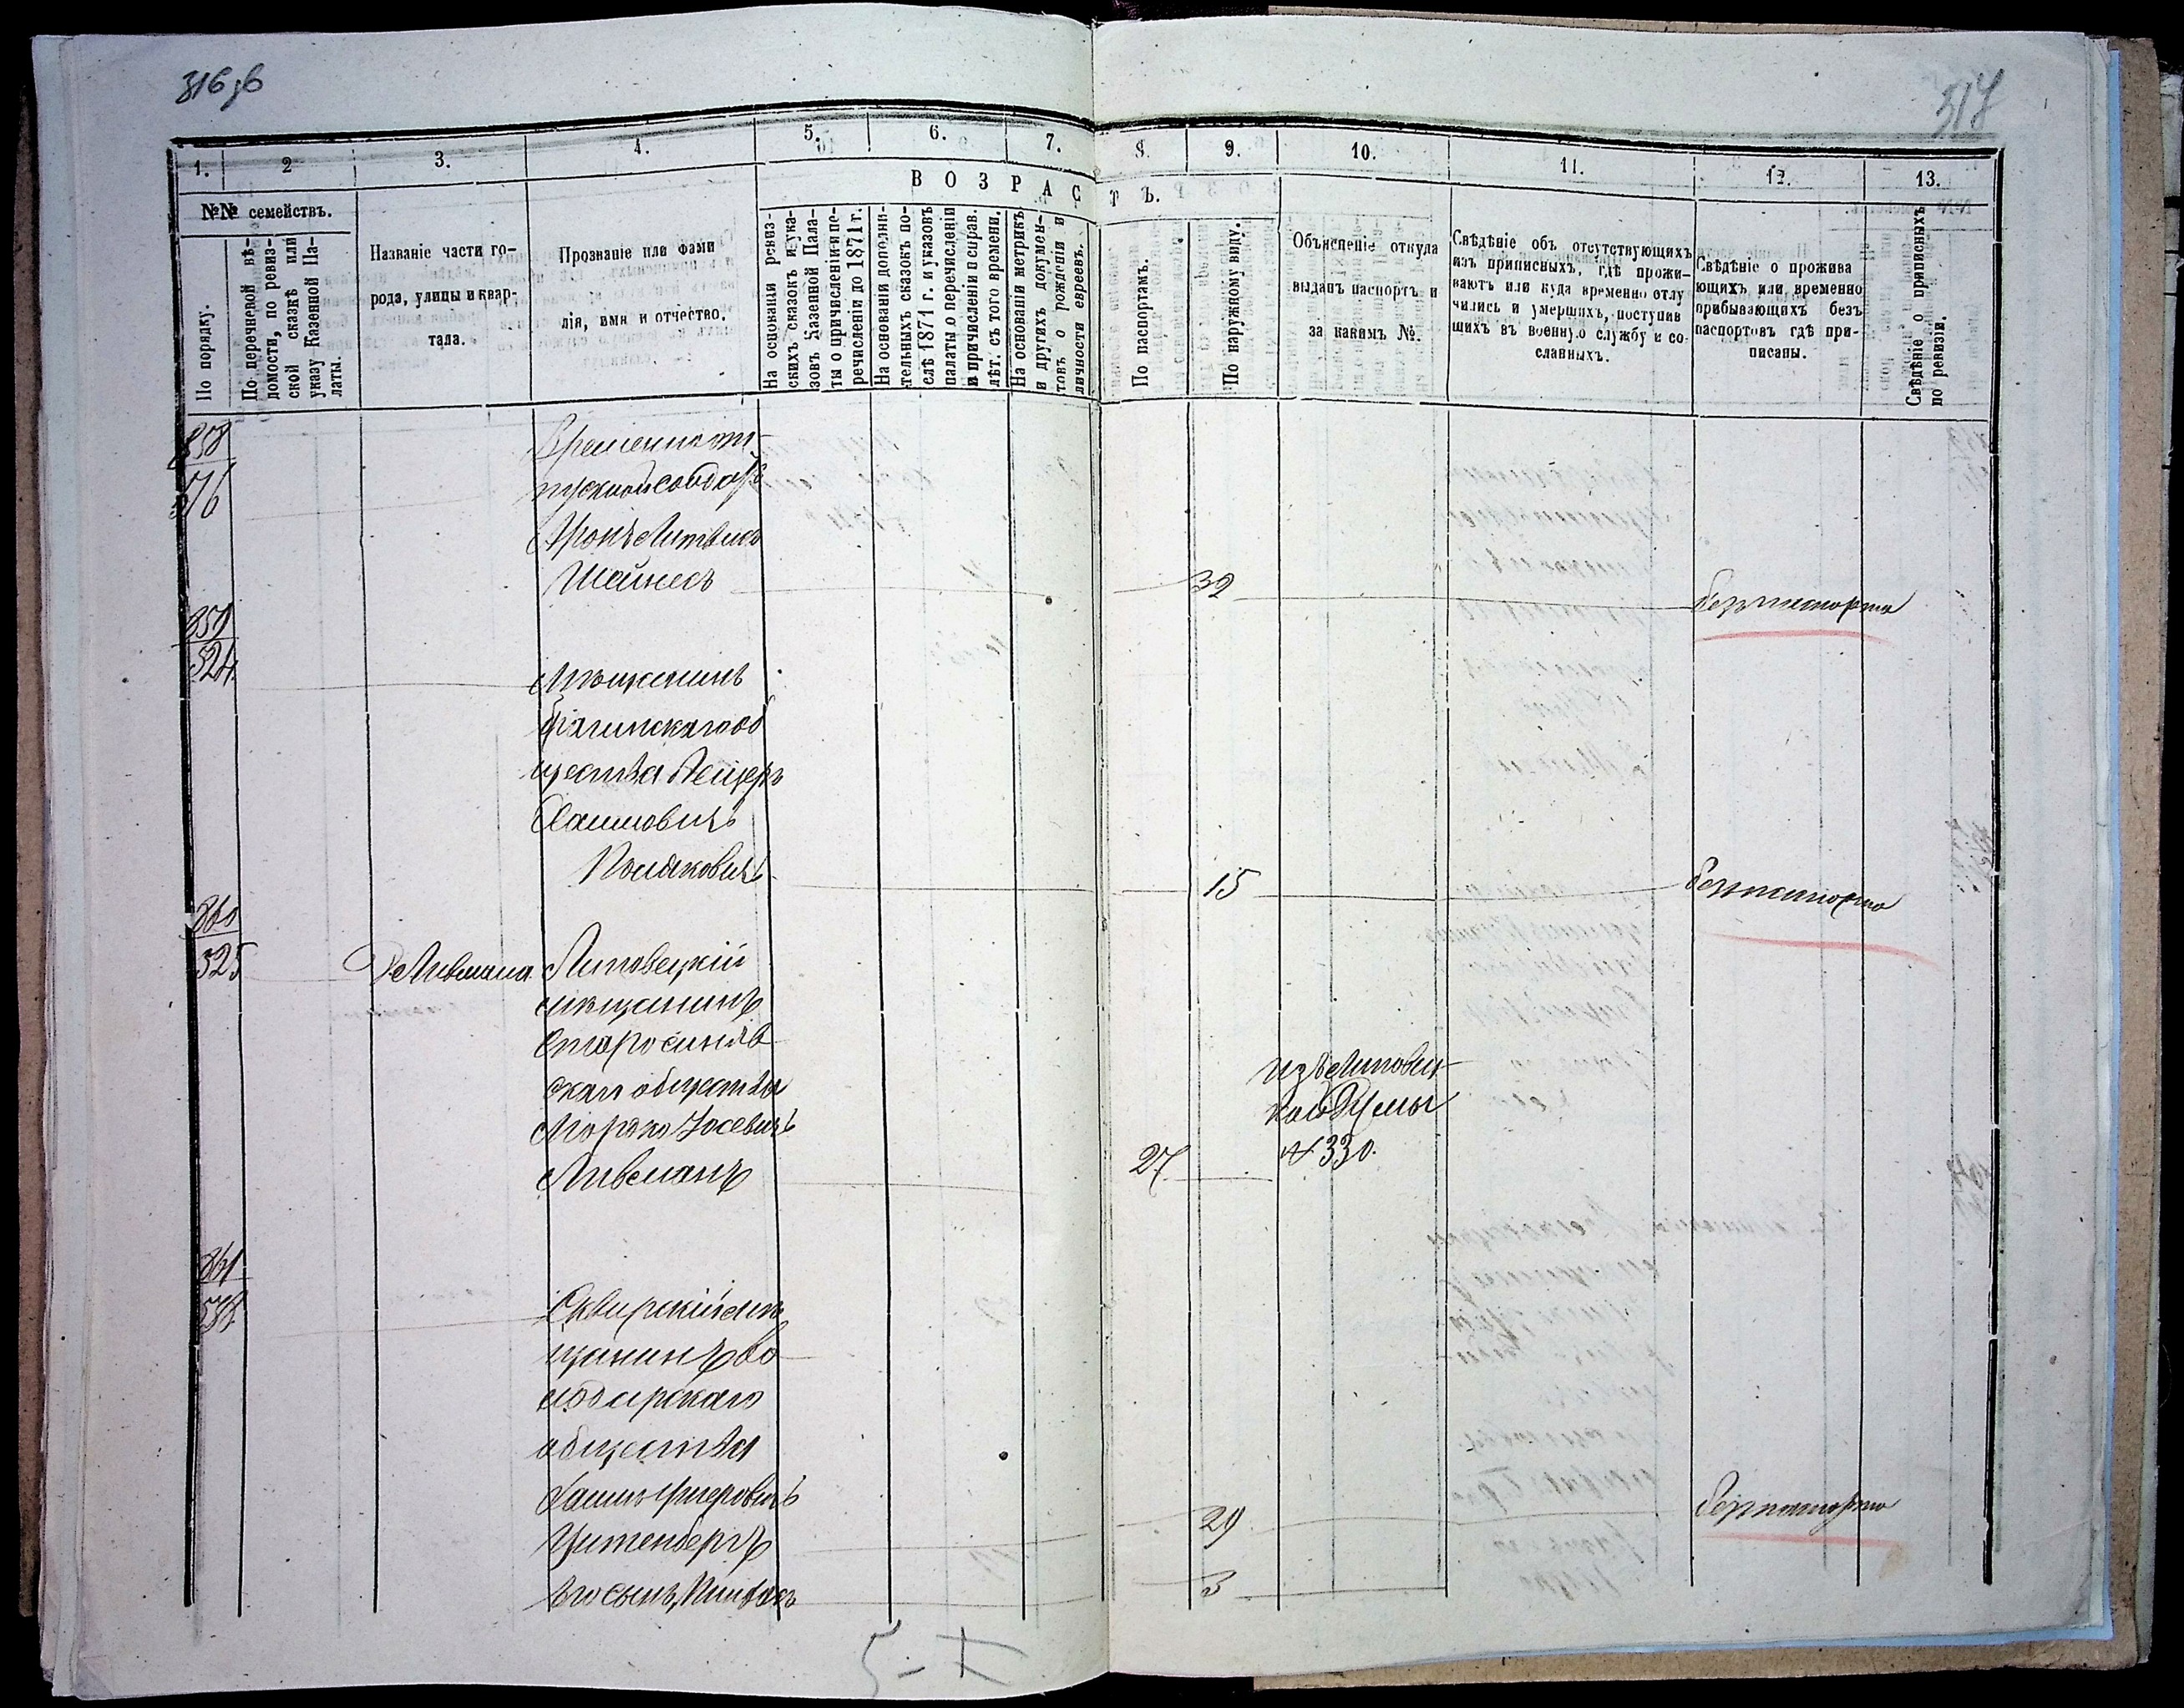 316 об
317
1.
2
3.
4.
5.
6.
7.
8.
9.
10.
11.
12.
13.
№№ семействъ.
По порядку.
По перечневой вѣ-
домости, по ревиз-
ской сказкѣ или
указу Казенной Па-
латы.
Названіе части го-
рода, улицы и квар-
тала.
Прозваніе или фами
лія, имя и отчество.
ВОЗРАСТЪ.
На основаніи ревиз-
скихъ сказокъ и ука-
зовъ Казенной Пала-
ты о причисленіи и пе-
речисленіи до 1871 г.
На основаніи дополни-
тельныхъ сказокъ по-
слѣ 1871 г. и указовъ
палаты о перечисленіи
и причисленіи и справ.
лѣт. съ того времени.
На основаніи метрикъ
и другихъ докумен-
товъ о рожденіи и
личности евреевъ.
По паспортамъ.
По наружному виду.
Объясненіе откуда
выданъ паспортъ и
за какимъ №.
Свѣдѣніе объ отсутствующихъ
изъ приписныхъ, гдѣ прожи-
ваютъ или куда временно отлу
чились и умершихъ, поступив
щихъ въ военную службу и со-
сланныхъ.
Свѣдѣніе о прожива
ющихъ или временно
прибывающихъ безъ
паспортовъ гдѣ при-
писаны.
Свѣдѣніе о приписныхъ
по ревизіи.
858
Временно от-
пускной солдатъ
Аронъ
Шейнесъ
32
безъ паспорта
859
524
Мѣщанинъ
об
щества
Хаимовичъ
15
безъ паспорта
860
525
Д Ливмана
Липовецкій
мѣщанинъ
Старосиняв
скаго общества
Мордко Іосевичъ
Ливманъ
27
изъ Липовец-
кой Думы
№ 330.
861
Сквирскій мѣ
щанинъ Во
лодарскаго
общества
Хаимъ
Цитенбергъ
29
безъ паспорта
его сынъ
3